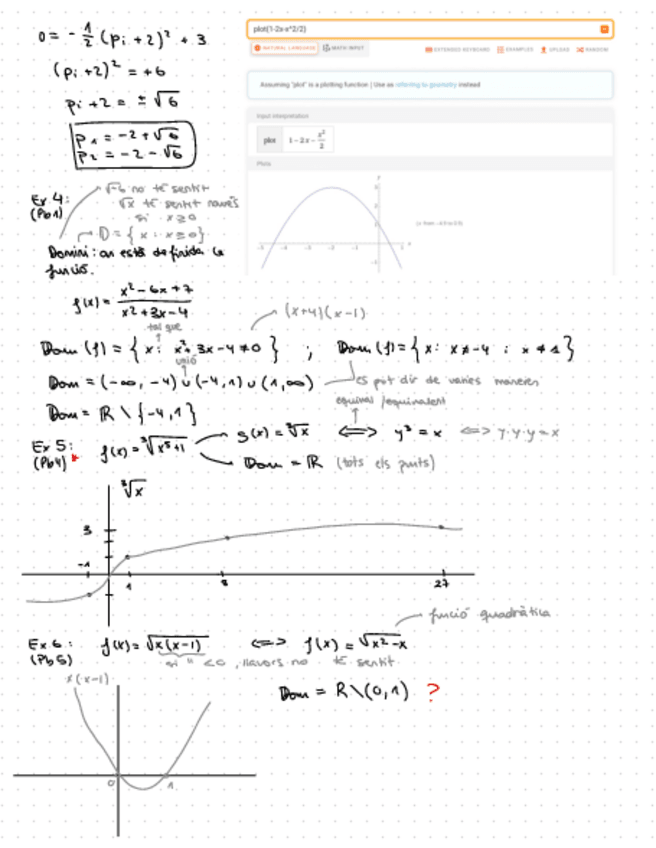 0 = - 1/2 (pi + 2)² + 3
(pi + 2)² = +6
pi + 2 = ± √6
p1 = -2 + √6
p2 = -2 - √6
plot(1-2x-x^2/2)
NATURAL LANGUAGE
MATH INPUT
EXTENDED KEYBOARD
EXAMPLES
UPLOAD
RANDOM
Assuming "plot" is a plotting function | Use as referring to geometry instead
Input interpretation
plot 1 - 2x - x²/2
Plots
Ex 4:
(Pb1)
√-6 no té sentit
√x té sentit només
si x ≥ 0
D = { x : x ≥ 0 }
Domini: on està definida la
funció.
f(x) = (x² - 6x + 7)/(x² + 3x - 4)
(x+4)(x-1)
tal que
Dom (f) = { x : x² + 3x - 4 ≠ 0 } ; Dom (f) = { x : x ≠ -4 i x ≠ 1 }
unió
Dom = (-∞, -4) ∪ (-4, 1) ∪ (1, ∞)
es pot dir de varies maneres
Dom = R \ {-4, 1}
equival /equivalent
Ex 5:
(Pb4) *
f(x) = ³√(x⁵+1)
s(x) = ³√x ⟺ y³ = x ⟺ y·y·y = x
Dom = R (tots els punts)
³√x
3
-1
1
8
27
funció quadràtica
Ex 6:
(Pb5)
f(x) = √(x(x-1)) ⟺ f(x) = √(x² - x)
si " < 0, llavors no té sentit
x(x-1)
Dom = R \ (0, 1) ?
0
1